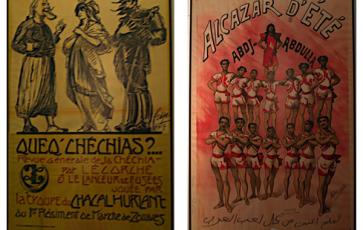 QUEQ' CHÉCHIAS?...
Revue générale de la CHÉCHIA
PAR LÉCORCHÉ
& LE LANCEUR DE FUSÉES
JOUÉE PAR
la TROUPE du CHACAL HURLANT
du 1er Régiment de Marche de Zouaves
ALCAZAR D'ÉTÉ
ABDJ-
ABDULLA